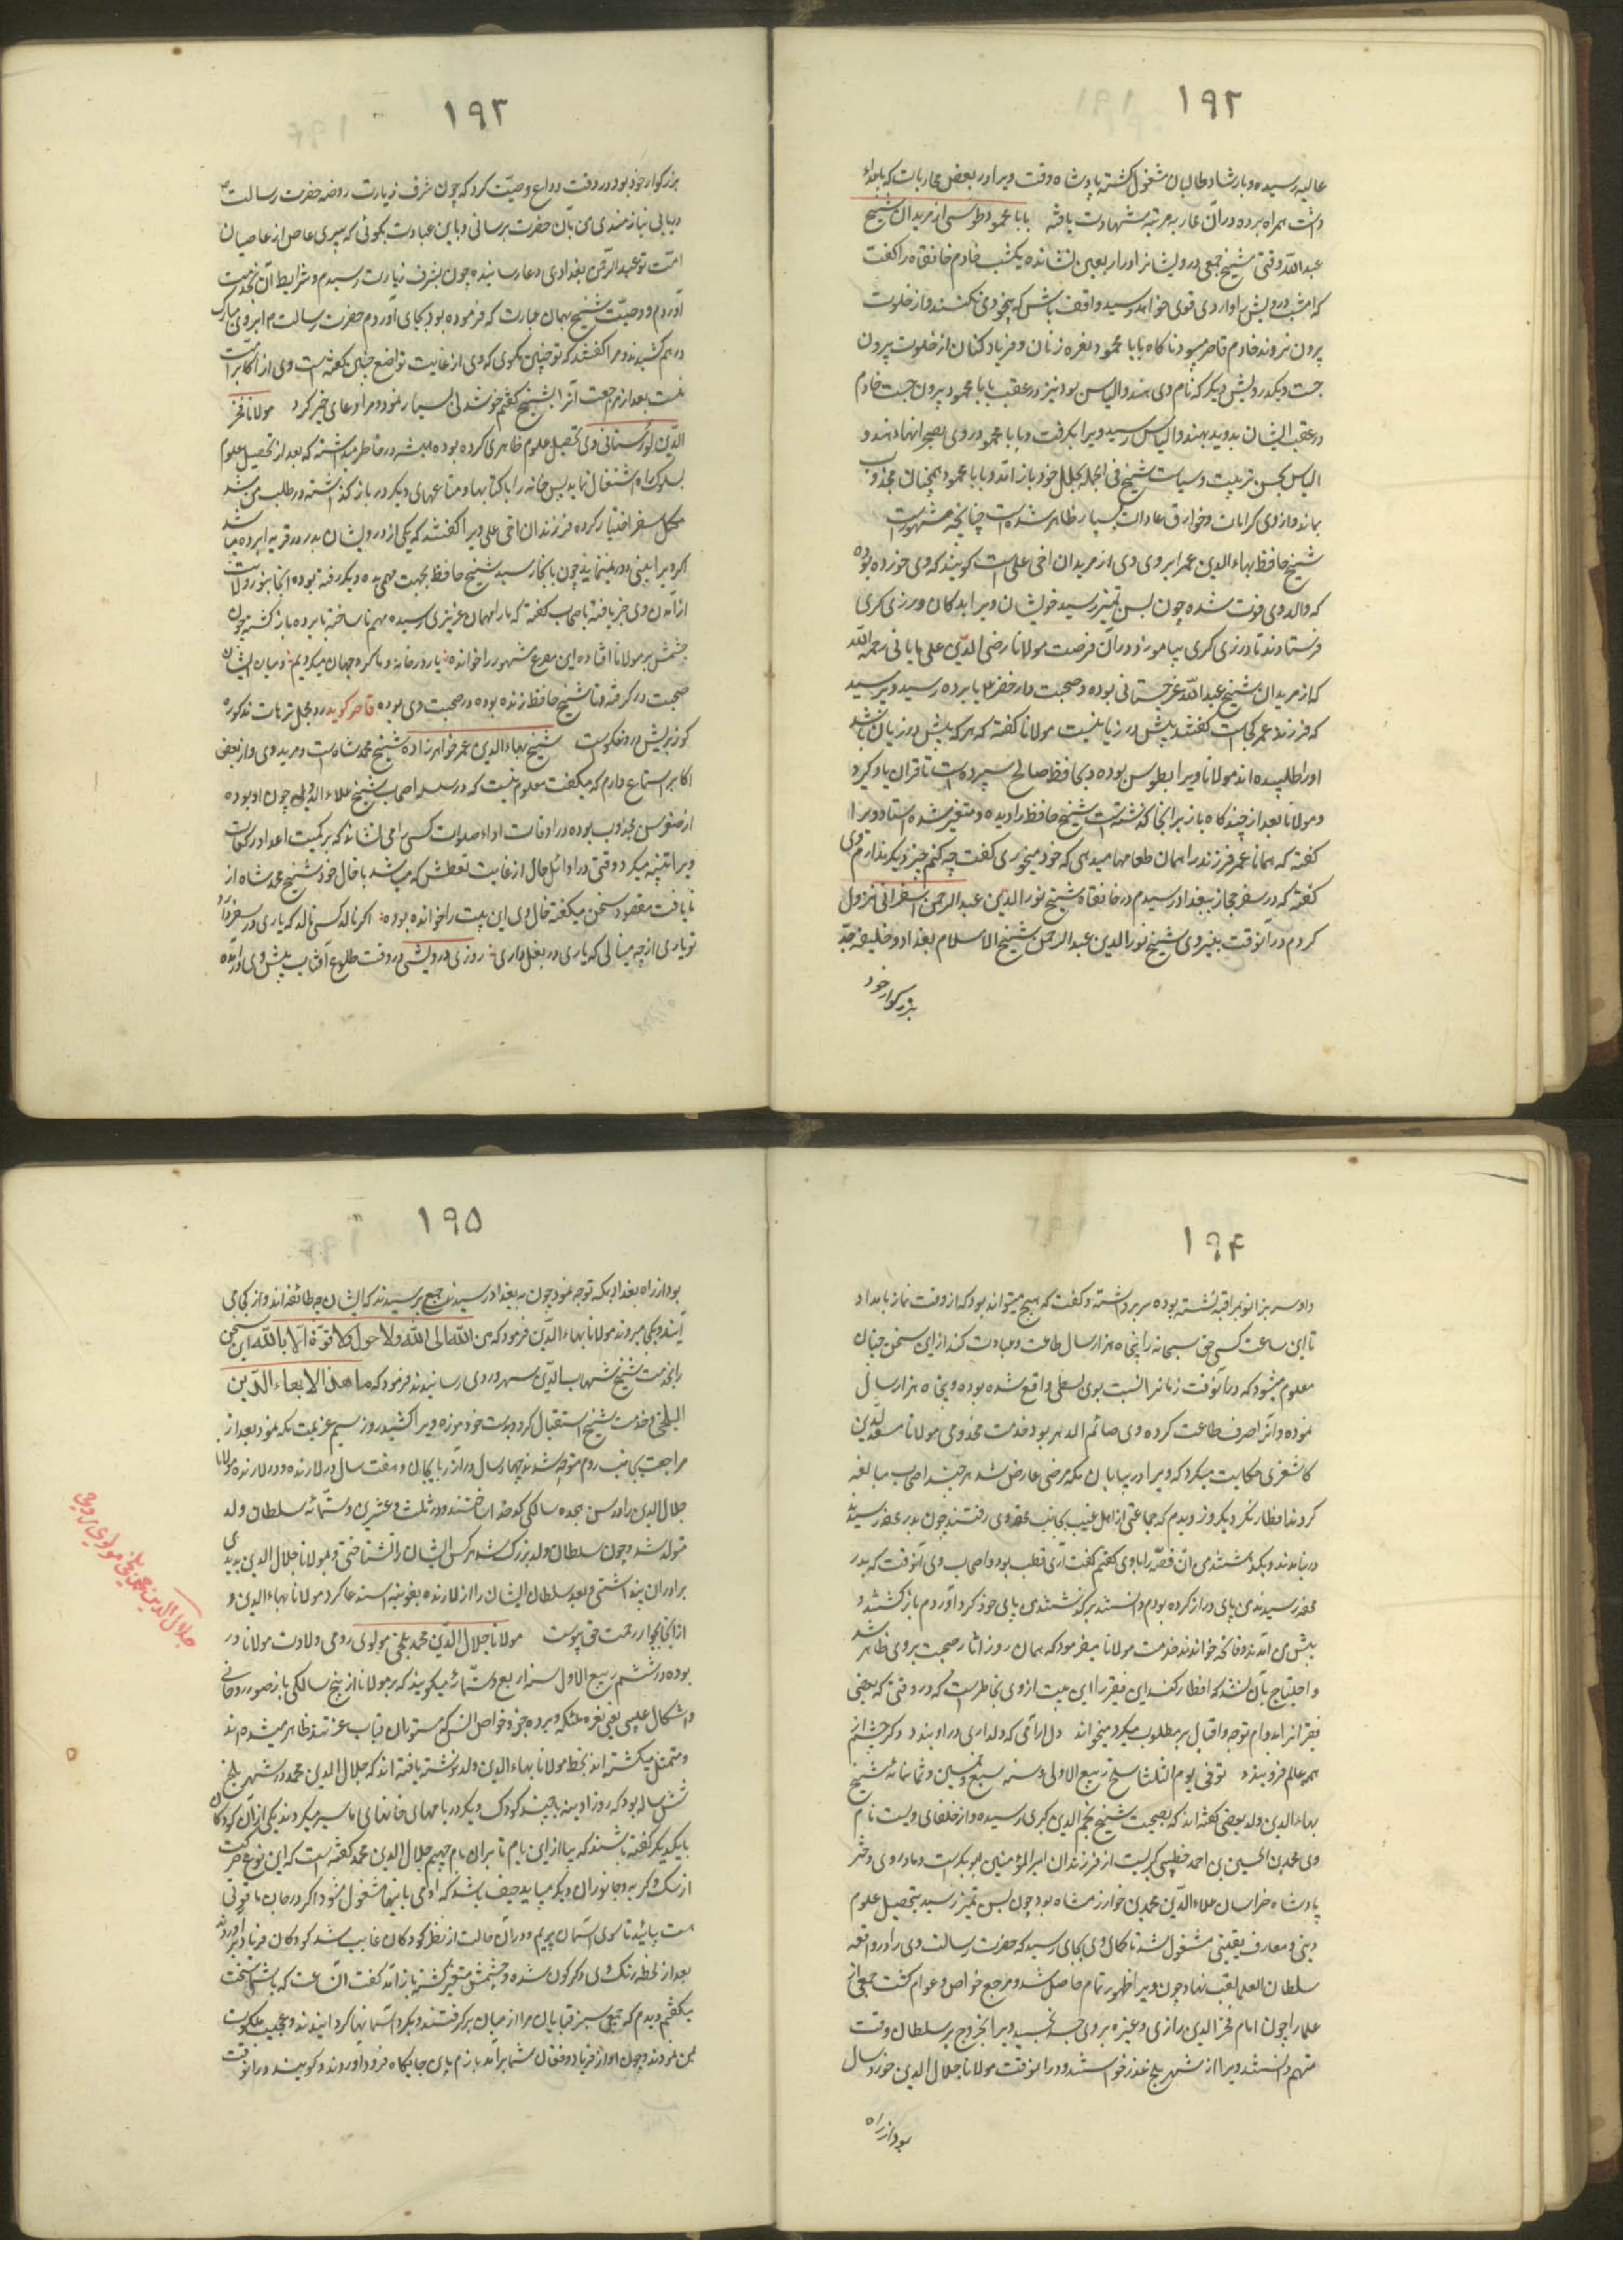 ۱۹۲
عالیه رسیده و بارشاد طالبان مشغول کشته پادشاه وقت ویرا در بعضی محاربات که با اعداء
داشت همراه برده و در آن محاربه مرتبه شهادت یافته بابا محمود طوسی از مریدان شیخ
عبد الله وقتی شیخ جمعی درویشانرا در اربعین نشانده یکشب خادم خانقاه را گفت
که امشب درویشی را واردی قوی خواهد رسید واقف باش که بیخودی نکنند و از خلوت
بیرون نروند خادم حاضر میبود ناکاه بابا محمود نعره زنان و فریاد کنان از خلوت بیرون
جست دیکر درویش دیکر که نام وی هندو الیاس بود نیز در عقب بابا محمود بیرون جست خادم
در عقب ایشان بدوید بهندو الیاس رسید ویرا بکرفت و بابا محمود روی بصحرا نهاد هندو
الیاس بحسن تربیت و سیاست شیخ فی الجمله بحال خود باز آمد و بابا محمود همچنان مجذوب
بماند و از وی کرامات و خوارق عادات بسیار ظاهر شده است چنانچه مشهورست
شیخ حافظ بهاء الدین عمر ابروی وی از مریدان اخی علی است کویند که وی خورده بوده
که والد وی فوت شده چون بسن تمیز رسید خویشان ویرا بدکان درزی کری
فرستادند تا درزی کری بیاموزد در آن فرصت مولانا رضی الدین علی مایانی رحمه الله
که از مریدان شیخ عبد الله غرجستانی بوده و صحبت دار خضر ع بابرده رسید و پرسید
که فرزند عمر کجاست گفتند پیش درزیانست مولانا گفته که هر که پیش درزیان باشد
او را طلبیده اند مولانا ویرا بطوس بوده و بحافظ صالح سپرده است تا قران یاد کیرد
و مولانا بعد از چند کاه باز بر آنجا کذشته است شیخ حافظ را دیده و متغیر شده استاد ویرا
گفته که همانا عمر فرزند را همان طعامها میدهی که خود میخوری گفت چه کنم چیز دیکر ندارم وی
گفته که در سفر حجاز ببغداد رسیدم در خانقاه شیخ نور الدین عبد الرحمن اسفراینی نزول
کردم در آنوقت نبیره وی شیخ نور الدین عبد الرحمن شیخ الاسلام بغداد و خلیفه جد
بزرکوار خود
۱۹۳
بزرکوار خود بود در وقت وداع وصیت کرد که چون شرف زیارت روضه حضرت رسالت
دریابی نیازمندی من بآن حضرت برسانی و باین عبارت بکوئی که پیری عاصی از عاصیان
امت تو عبد الرحمن بغدادی دعا رسانیده چون بشرف زیارت رسیدم و شرایط آن خدمت
آوردم و وصیت شیخ بهمان عبارت که فرموده بود بجای آوردم حضرت رسالت ابروی مبارک
درهم کشیدند و مرا گفتند که تو چنین مکوی که وی از غایت تواضع چنین گفته است وی از اکابر امت
منست بعد از مراجعت آنرا بشیخ کفتم خوشدلی بسیار نمود و مرا دعای خیر کرد مولانا فخر
الدین لورستانی وی تحصیل علوم ظاهری کرده بوده همیشه در خاطر میداشته که بعد از تحصیل علوم
بسلوک راه اشتغال نماید پس خانه را با کتابها و متاعهای دیکر در باز کذاشته در طلب مرشد
مکمل سفر اختیار کرده فرزندان اخی علی ویرا گفتند که یکی از درویشان پدر در قریه ابرده میباشد
اکر ویرا بینی دور نمینماید چون بآنجا رسید شیخ حافظ بجهت مهمی بده دیکر رفته بوده آنجا بنور ولایت
از آمدن وی خبر یافته باصحاب گفته که ما را مهمان عزیزی رسیده مهم ناساخته بابرده بازکشته چون
چشمش بر مولانا افتاده این مصرع مشهور را خوانده یار در خانه و ما کرد جهان میکردیم و میان ایشان
صحبت درکرفته و تا شیخ حافظ زنده بوده در صحبت وی بوده قاصر کوید
شیخ بهاء الدین عمر خواهرزاده شیخ محمد شاه است و مرید وی و از بعض
اکابر استماع دارم که میکفت معلوم نیست که در سلسله اصحاب شیخ علاء الدوله چون او بوده
از صغر سن مجذوب بوده در اوقات اداء صلوات کسی را می نشاند که بر کمیت اعداد رکعات
ویرا تنبیه میکرد وقتی در اوائل حال از غایت تعطش که میباشد با خال خود شیخ محمد شاه از
نایافت مقصود سخن میکفته خال وی این بیت را خوانده بوده اکر نالد کسی نالد که یاری در سفر دارد
تو باری از چه مینالی که یاری در بغل داری روزی درویشی در وقت طلوع آفتاب پیش وی درآمده
۱۹۴
و او سر بزانو بمراقبه نشسته بوده سر برداشته و کفت که هیچ میتواند بود که از وقت نماز بامداد
تا این ساعت کسی حق سبحانه را پنجاه هزار سال طاعت و عبادت کند از این سخن چنان
معلوم میشود که در آنوقت زمانرا نسبت بوی بسطی واقع شده بوده و پنجاه هزار سال
نموده و آنرا صرف طاعت کرده وی صائم الدهر بود خدمت مخدومی مولانا سعد الدین
کاشغری حکایت میکرد که ویرا در بیابان مکه مرضی عارض شد هر چند اصحاب مبالغه
کردند افطار نکرد یکروز دیدم که جماعتی از اهل غیب بجانب محفه وی رفتند چون بدر محفه رسیدند
در نیامدند و بکذشتند من آن قصه را با وی کفتم گفت آری قطب بود و اصحاب وی آنوقت که بدر
محفه رسیدند من پای دراز کرده بودم دانستند برکذشتند من پای خود کرد آوردم بازکشتند و
پیش من آمدند و فاتحه خواندند خدمت مولانا میفرمود که همان روز آثار صحت بروی ظاهر شد
و احتیاج بآن نشد که افطار کند این فقیر را این بیت از وی بخاطر است که در وقتی که بعضی
فقرا را بدوام توجه و اقبال بر مطلوب میکرد میخواند دلارامی که داری دل در او بند دکر چشم از
همه عالم فروبند توفی یوم الثلثا سلخ ربیع الاولی سنه سبع و خمسین و ثمانمائه شیخ
بهاء الدین ولد بعضی گفته اند که بصحبت شیخ نجم الدین کبری رسیده و از خلفای ویست نام
وی محمد بن الحسین بن احمد خطیبی بکریست از فرزندان امیر المؤمنین ابو بکرست و مادر وی دختر
پادشاه خراسان علاء الدین محمد بن خوارزمشاه بود چون بسن تمیز رسید بتحصیل علوم
دینی و معارف یقینی مشغول شد تا کمال وی بجای رسید که حضرت رسالت وی را در واقعه
سلطان العلما لقب نهاد چون ویرا ظهور تمام حاصل شد و مرجع خواص و عوام کشت جمعی از
علما را چون امام فخر الدین رازی و غیره بر وی حسد بجنبید ویرا بخروج بر سلطان وقت
متهم داشتند ویرا از شهر بلخ عذر خواستند و در آنوقت مولانا جلال الدین خورد سال
بود از راه
۱۹۵
بود از راه بغداد بمکه توجه نمود چون به بغداد رسیدند جمعی پرسیدند که ایشان چه طائفه اند و از کجا می
آیند و بکجا میروند مولانا بهاء الدین فرمود که من الله الی الله ولا حول ولا قوة الا بالله این سخن
را بخدمت شیخ شهاب الدین سهروردی رسانیدند فرمود که ما هذا الا بهاء الدین
البلخی و خدمت شیخ استقبال کرد و بدست خود موزه ویرا کشید روز سیم عزیمت مکه نمود بعد از
مراجعت بجانب روم متوجه شدند چهار سال در آذربایجان و هفت سال در لارنده و در لارنده مولانا
جلال الدین را در سن هجده سالکی کدخدا ساختند و در ثلث و عشرین و ستمائه سلطان ولد
متولد شد و چون سلطان ولد بزرک شد هر کس ایشان را نشناختی و بمولانا جلال الدین بدیدی
برادران پنداشتی و بعد سلطان ایشان را از لارنده بقونیه استدعا کرد مولانا بهاء الدین و
از آنجا بجوار رحمت حق پیوست مولانا جلال الدین محمد بلخی مولوی رومی ولادت مولانا در
بوده در ششم ربیع الاول سنه اربع و ستمائه میکویند که بر مولانا از پنج سالکی باز صور روحانی
و اشکال غیبی یعنی سفره ملئکه و برره جن و خواص انس که مستوران قباب عزتند ظاهر میشده اند
و متمثل میکشته اند بخط مولانا بهاء الدین ولد نوشته یافته اند که جلال الدین محمد در شهر بلخ
شش ساله بود که روز ادینه با چند کودک دیکر در بامهای خانهای ما سیر میکردند یکی از آن کودکان
با یکدیکر گفته باشند که بیا از این بام تا بر آن بام جهیم جلال الدین محمد گفته است که این نوع حرکت
از سک و کربه و جانوران دیکر میباید حیف باشد که آدمی باینها مشغول شود اکر در جان ما قوتی
هست بیائید تا سوی آسمان بپریم و در آن حالت از نظر کودکان غایب شد کودکان فریاد برآوردند
بعد از لحظه رنک وی دکرکون شده و چشمش متغیر کشته باز آمد کفت آنساعت که با شما سخن
میکفتم دیدم که جمعی سبز قبایان مرا از میان برکرفتند و بکرد آسمانها کردانیدند و عجایب ملکوت
بمن نمودند و چون آواز فریاد و فغان شما برآمد بازم باین جایکاه فرود آوردند و کویند در آنوقت
جلال الدین محمد بلخی مولوی رومی